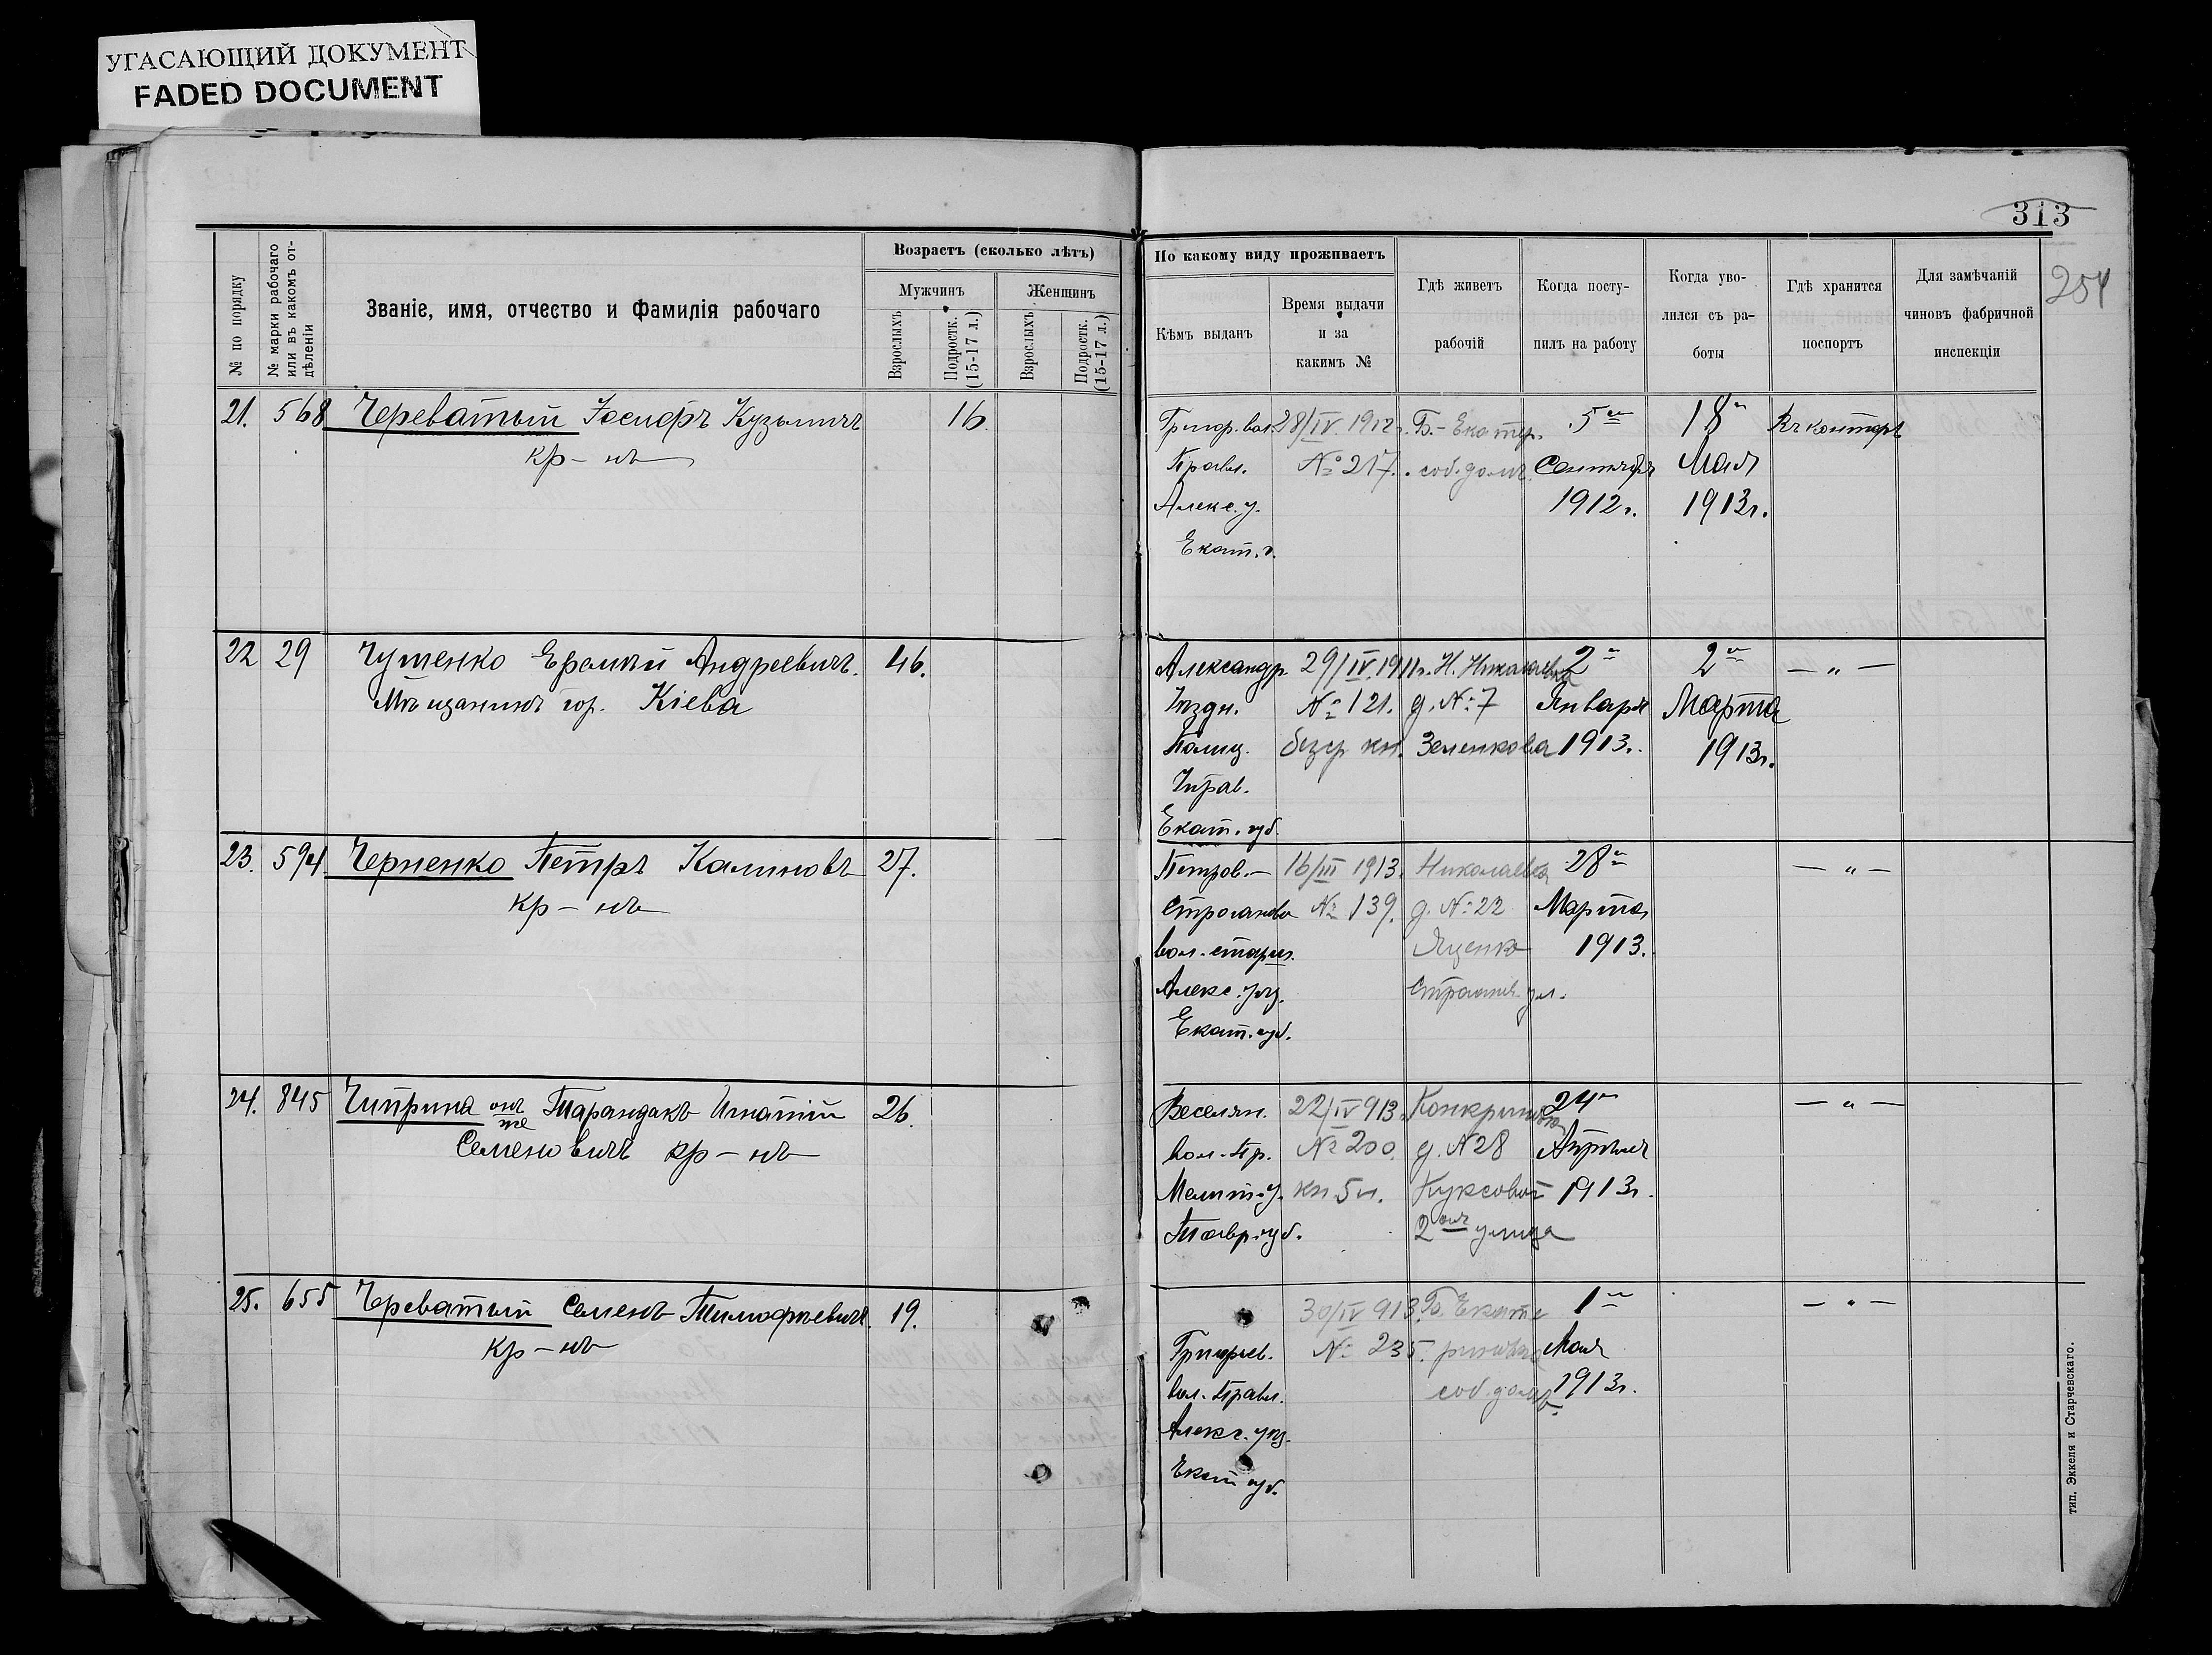 УГАСАЮЩИЙ ДОКУМЕНТ
FADED DOCUMENT
313
254
№ по порядку
№ марки рабочаго или въ какомъ от-дѣленіи
Званіе, имя, отчество и фамилія рабочаго
Возрастъ (сколько лѣтъ)
Мужчинъ
Женщинъ
Взрослыхъ
Подростк. (15-17 л.)
Взрослыхъ
Подростк. (15-17 л.)
По какому виду проживаетъ
Кѣмъ выданъ
Время выдачи
и за
какимъ №
Гдѣ живетъ
рабочій
Когда посту-
пилъ на работу
Когда уво-
лился съ ра-
боты
Гдѣ хранится
поспортъ
Для замѣчаній
чиновъ фабричной
инспекціи
21. 568 Череватый Іосифъ Кузьмичъ 16. Григор. вол. 28/IV 1912г. Б.-Екатер. 5го 18го Въ конторѣ
кр-нъ Правл. № 217. соб. домъ. Сентября Мая
Алекс. у. 1912г. 1913г.
Екат. г.
22 29 Чутенко Еремѣй Андреевичъ. 46. Александр. 29/IV 1911г. Н. Николаевка 2го 2го — " —
Мѣщанинъ гор. Кіева Уѣздн. № 121. д. № 7 Января Марта
Полиц. безср кн. Зеленкова 1913г. 1913г.
Управ.
Екат. губ.
23. 594. Черненко Петръ Калиновъ 27. Петров.- 16/III 1913. Николаевка 28го — " —
кр-нъ Строганово № 139. д. № 22 Марта
вол. старш. Яценко 1913.
Алекс. уѣз. ул.
Екат. губ.
24. 845 Чиприна онъ же Тарандакъ Игнатій 26. Веселян. 22/IV 913. 24го — " —
Семеновичъ кр-нъ вол. Пр. № 200. д. № 28 Апрѣля
Мелит. у. кн. 5л. Куксовой 1913г.
Тавр. губ. 2ая улица
25. 655 Череватый Семенъ Тимофѣевичъ. 19. 30/IV 913. Б. Екате 1го — " —
кр-нъ Григорьев. № 235. Мая
вол. Правл. соб. домъ 1913г.
Алекс. уѣз.
Екат губ.
тип. Эккеля и Старчевскаго.